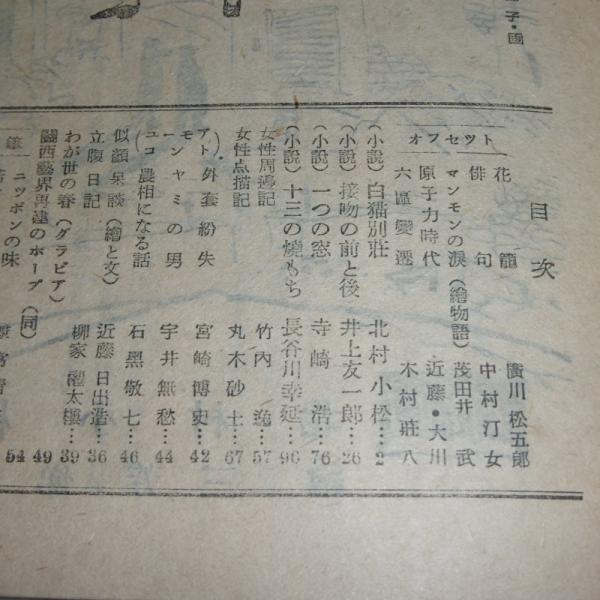 子・画
目次
オフセット
花籠 廣川松五郎
俳句 中村汀女
マンモンの涙(繪物語) 茂田井武
原子力時代 近藤・大川
六區變遷 木村莊八
(小説) 白猫別莊 北村小松…2
(小説) 接吻の前と後 井上友一郎…26
(小説) 一つの窓 寺崎浩…76
(小説) 十三の燒もち 長谷川幸延…96
女性周邊記 竹内逸…57
女性点描記 丸木砂土…67
(ユーモアコント)
外套紛失 宮崎博史…42
ヤミの男 宇井無愁…44
農相になる話 石黒敬七…46
似顔呆談(繪と文) 近藤日出造…36
立腹日記 柳家權太樓…39
わが世の春(グラビア) 49
關西藝界再建のホープ(同)
ニッポンの味 54